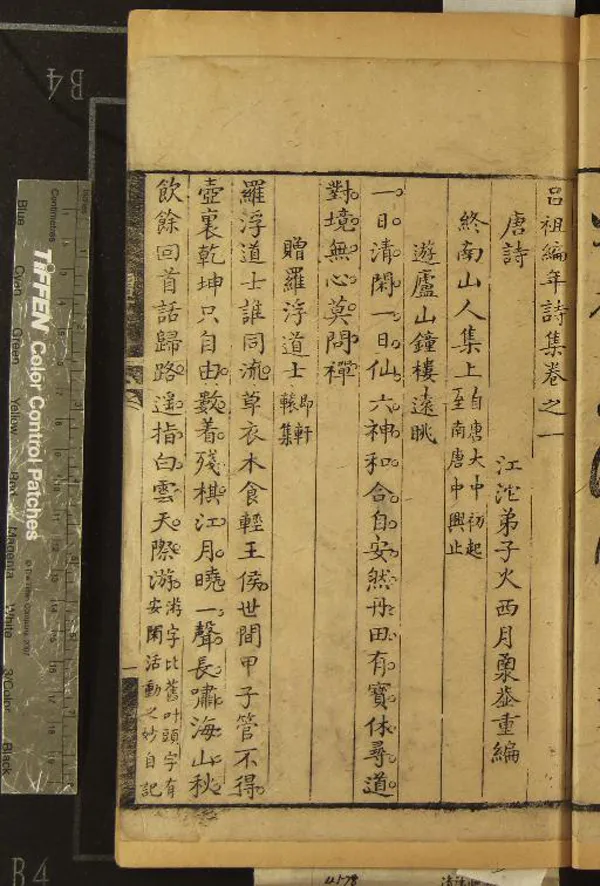 呂祖編年詩集卷之一
江沱弟子火西月稟
重編
唐詩
終南山人集上 自唐大中初起
至南唐中興止
遊廬山鐘樓遠眺
一日清閑一日仙六神和合自安然丹田有寶休尋道
對境無心莫問禪
贈羅浮道士 即軒
轅集
羅浮道士誰同流草衣木食輕王侯世間甲子管不得
壺裏乾坤只自由數着殘棋江月曉一聲長嘯海山秋
飲餘回首話歸路遥指白雲天際游 游字比舊叶頭字有
安閑活動之妙自記
B4
B4
Centimetres
TIFFEN Color Control Patches
© The Tiffen Company, 2007
Blue
Cyan
Green
Yellow
Red
Magenta
White
3/Color
Black
4178